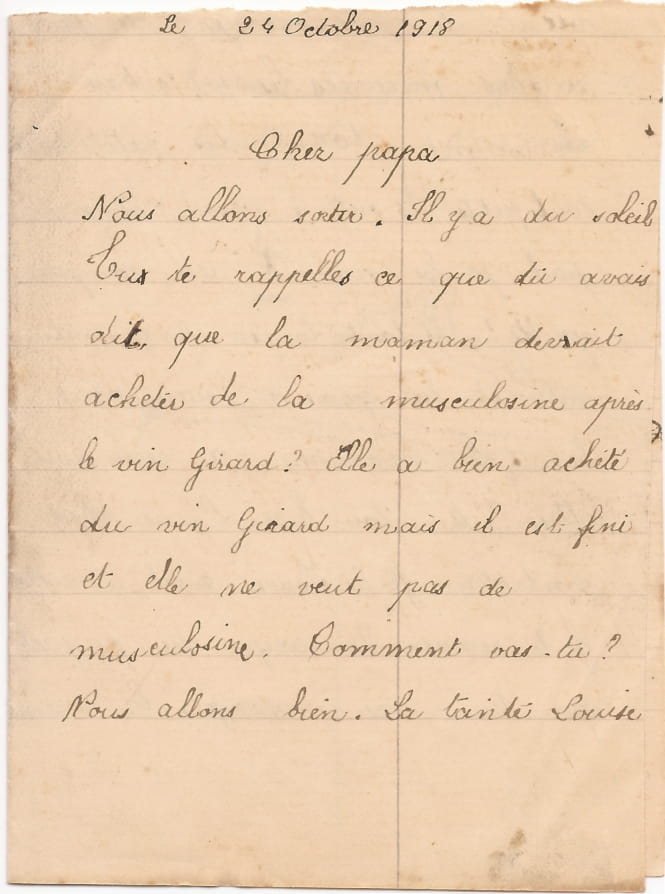 Le 24 Octobre 1918
Cher papa
Nous allons sortir. Il y a du soleil
Tu te rappelles ce que tu avais
dit que la maman devrait
acheter de la musculosine après
le vin Girard? Elle a bien acheté
du vin Girard mais il est fini
et elle ne veut pas de
musculosine. Comment vas-tu?
Nous allons bien. La tante Louise